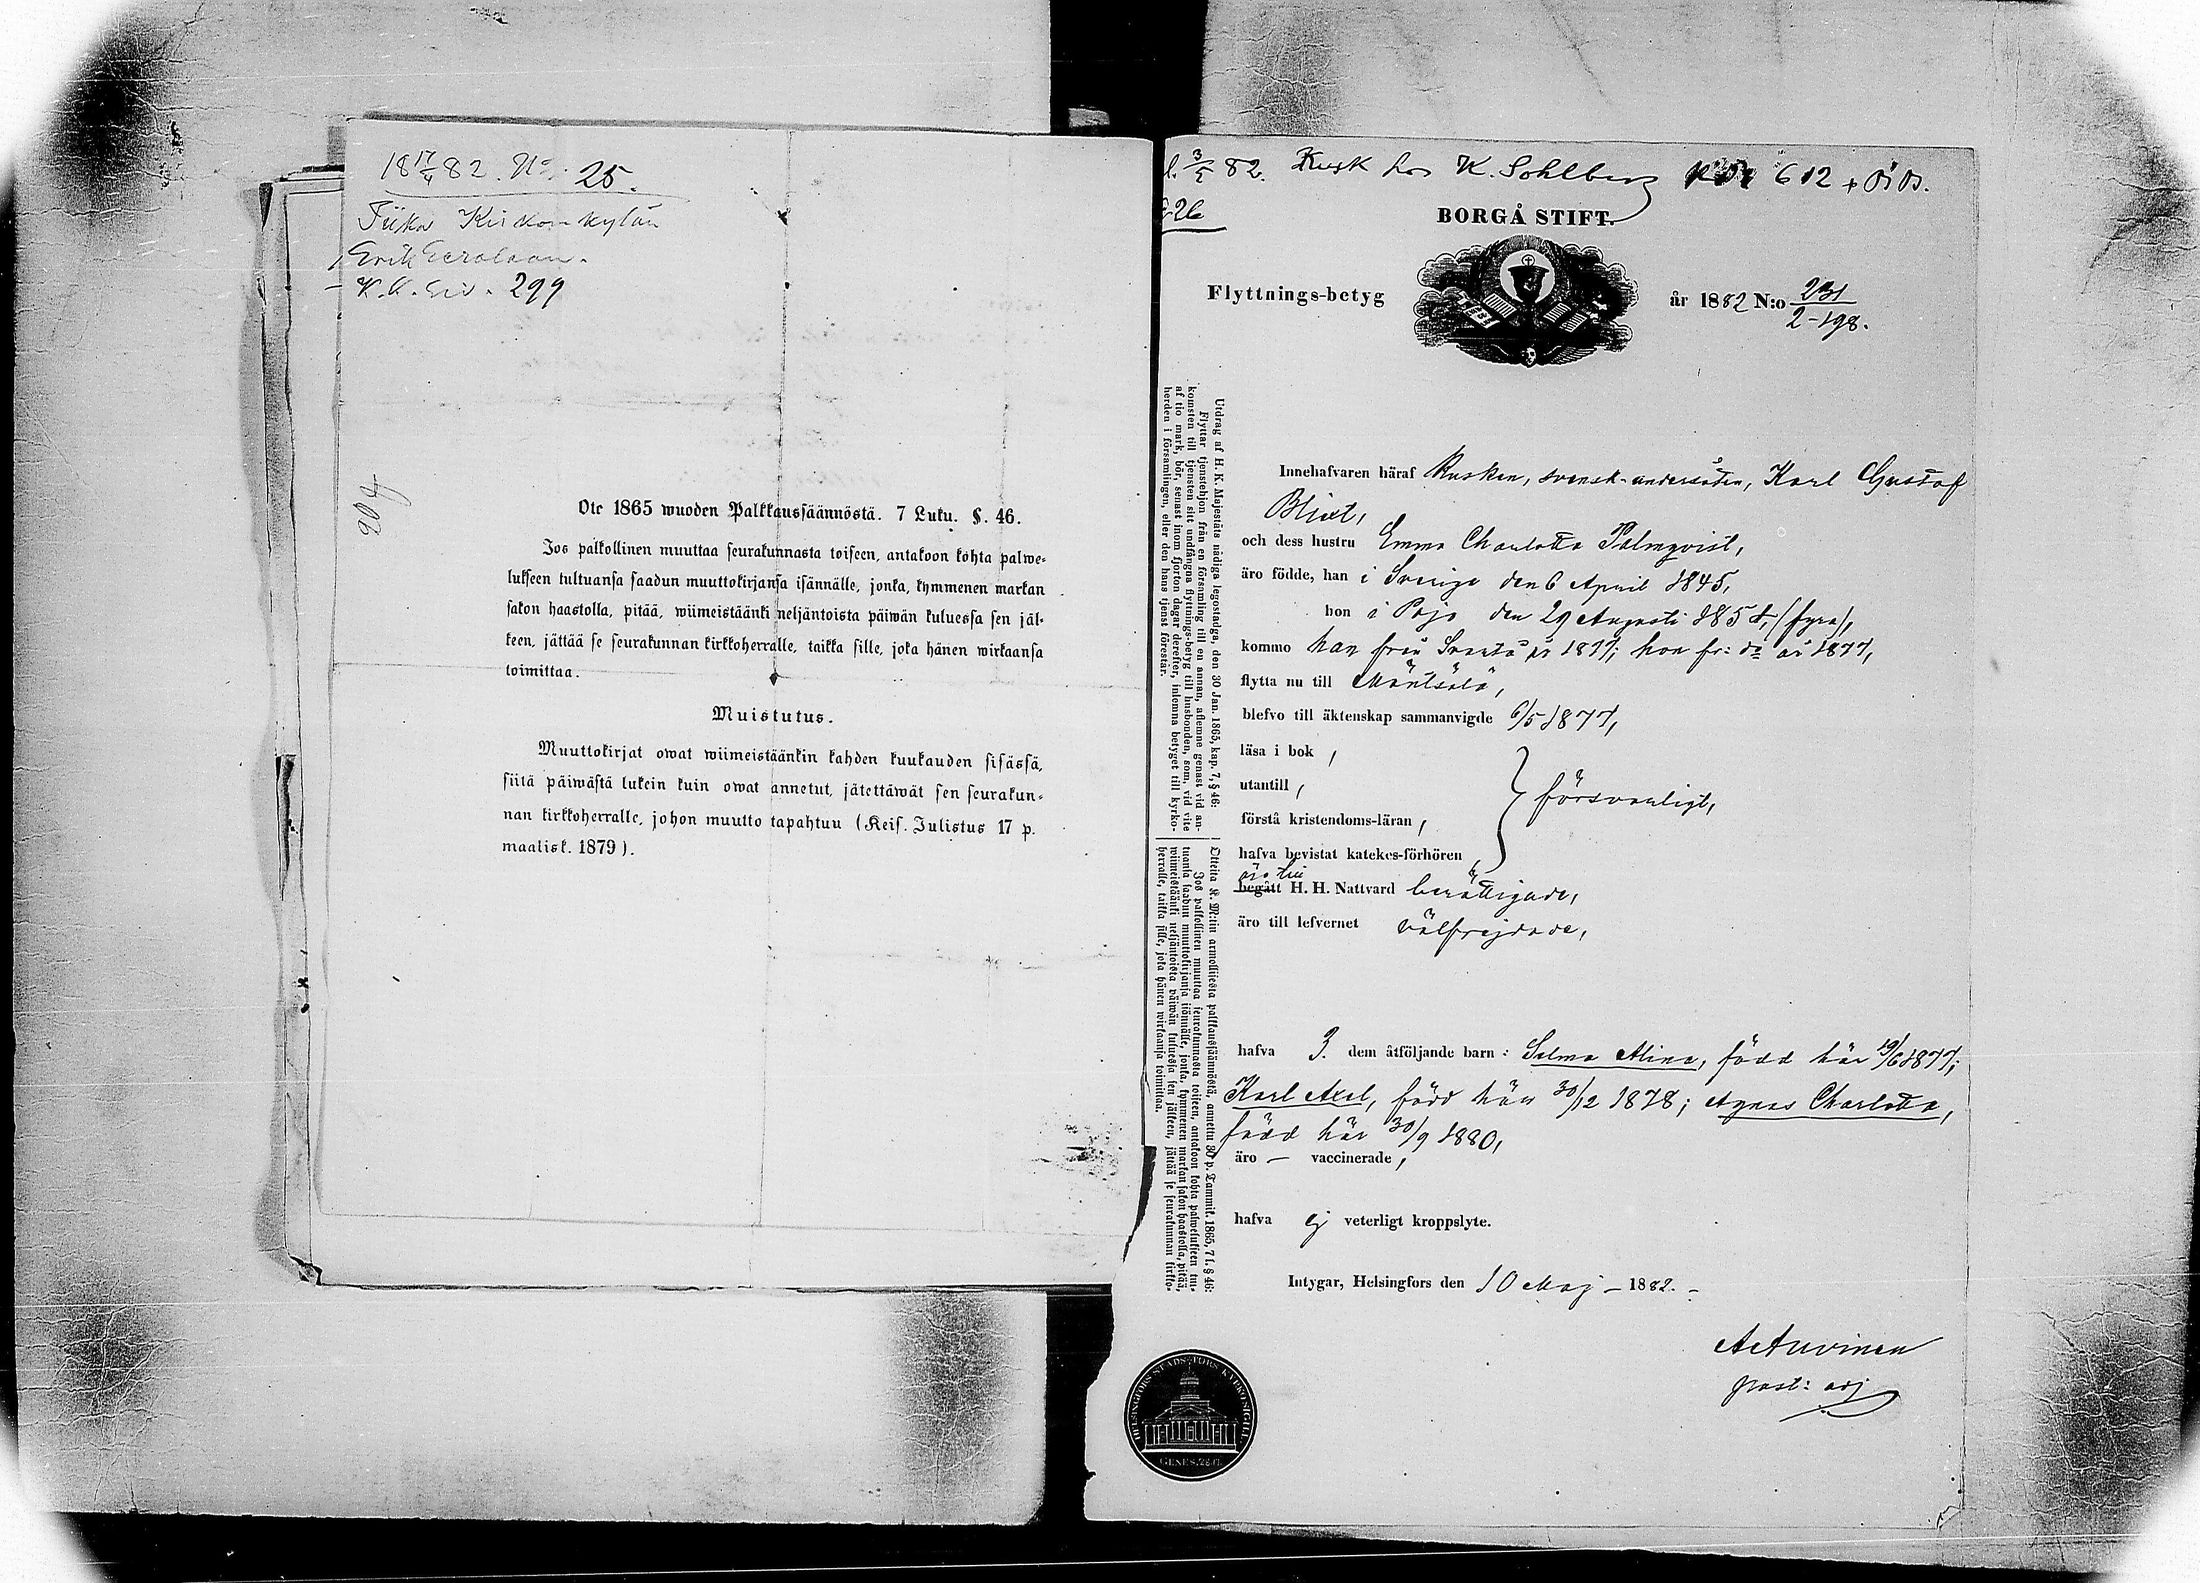 18 17/4 82. No. 25.
Erik
299
Ote 1865 wuoden Palkkaussäännöstä. 7 Luku. §. 46.
Jos palkollinen muuttaa seurakunnasta toiseen, antakoon kohta palwe-
lukseen tultuansa saadun muuttokirjansa isännälle, jonka, kymmenen markan
sakon haastolla, pitää, wiimeistäänki neljäntoista päiwän kuluessa sen jäl-
keen, jättää se seurakunnan kirkkoherralle, taikka sille, joka hänen wirkaansa
toimittaa.
Muistutus.
Muuttokirjat owat wiimeistäänkin kahden kuukauden sisässä,
siitä päiwästä lukein kuin owat annetut, jätettäwät sen seurakun-
nan kirkkoherralle, johon muutto tapahtuu (Keis. Julistus 17 p.
maalisk. 1879).
82. Kusk hos K. Sohlberg 612
BORGÅ STIFT.
Flyttnings-betyg
år 1882 N:o 231
2-198.
Utdrag af H. K. Majestäts nådiga legostadga, den 30 Jan. 1865, kap. 7, § 46:
Flyttar tjenstehjon från en församling till en annan, aflemne genast vid an-
komsten till tjensten sitt undfångna flyttnings-betyg till husbonden, som, vid vite
af tio mark, bör, senast inom fjorton dagar derefter, inlemna betyget till kyrko-
herden i församlingen, eller den hans tjenst förestår.
Otteita K. M:tin armollisesta palkkaussäännöstä, annettu 30 p. Tammik. 1865, 7 l. § 46:
Jos palkollinen muuttaa seurakunnasta toiseen, antakoon kohta palwelukseen tul-
tuansa saadun muuttokirjansa isännälle, jonka, kymmenen markan sakon haastolla, pitää,
wiimeistäänki neljäntoista päiwän kuluessa sen jälkeen, jättää se seurakunnan kirkko-
herralle, taikka sille, joka hänen wirkaansa toimittaa.
Innehafvaren häraf Kusken, svensk-undersåten, Karl Gustaf
Blixt,
och dess hustru Emma Charlotta Palmqvist,
äro födde, han i Sverige den 6 April 1845,
hon i Pojo den 29 Augusti 1854, (fyra),
kommo han från år 1877; hon fr: d:o år 1877,
flytta nu till Mäntsälä,
blefvo till äktenskap sammanvigde 6/5 1877,
läsa i bok,
utantill,
förstå kristendoms-läran,
försvarligt,
hafva bevistat katekes-förhören,
äro till
begått H. H. Nattvard berättigade,
äro till lefvernet välfrejdade,
hafva 3. dem åtföljande barn: Selma Alina, född här 19/6 1877;
Karl Axel, född här 30/12 1878; Agnes Charlotta,
född här 30/9 1880,
äro — vaccinerade,
hafva ej veterligt kroppslyte.
Intygar, Helsingfors den 10 Maj — 1882. —
A Auvinen
past: adj
HELSINGFORS STADS-FÖRS. KYRKO SIGILL.